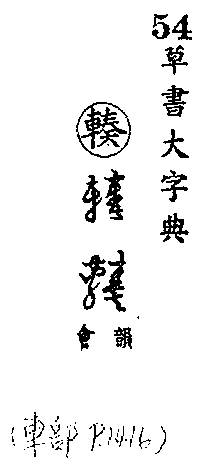 54
草書大字典
輳
韻會
(車部 P.1416)